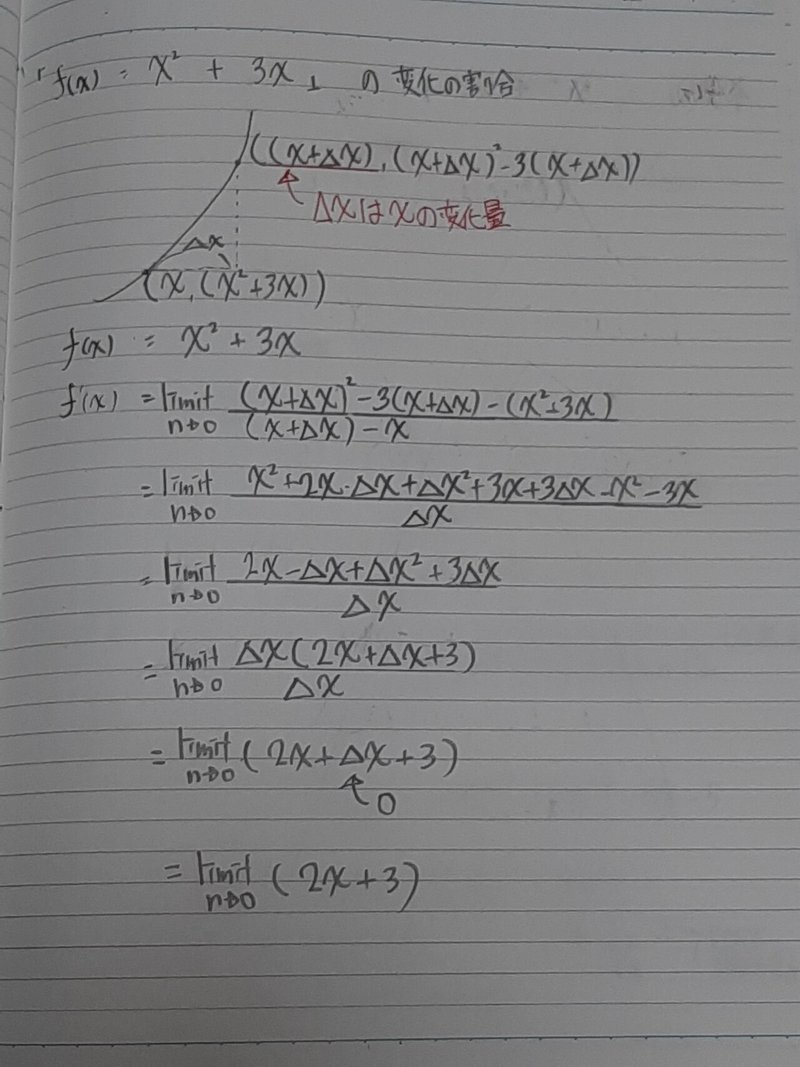 「f(x) = x² + 3x」の変化の割合
((x+Δx), (x+Δx)²-3(x+Δx))
Δxはxの変化量
Δx
(x, (x²+3x))
f(x) = x² + 3x
f'(x) = limit n→0 (x+Δx)²-3(x+Δx)-(x²+3x) / (x+Δx)-x
= limit n→0 x²+2x・Δx+Δx²+3x+3Δx-x²-3x / Δx
= limit n→0 2x-Δx+Δx²+3Δx / Δx
= limit n→0 Δx(2x+Δx+3) / Δx
= limit n→0 (2x+Δx+3)
0
= limit n→0 (2x+3)